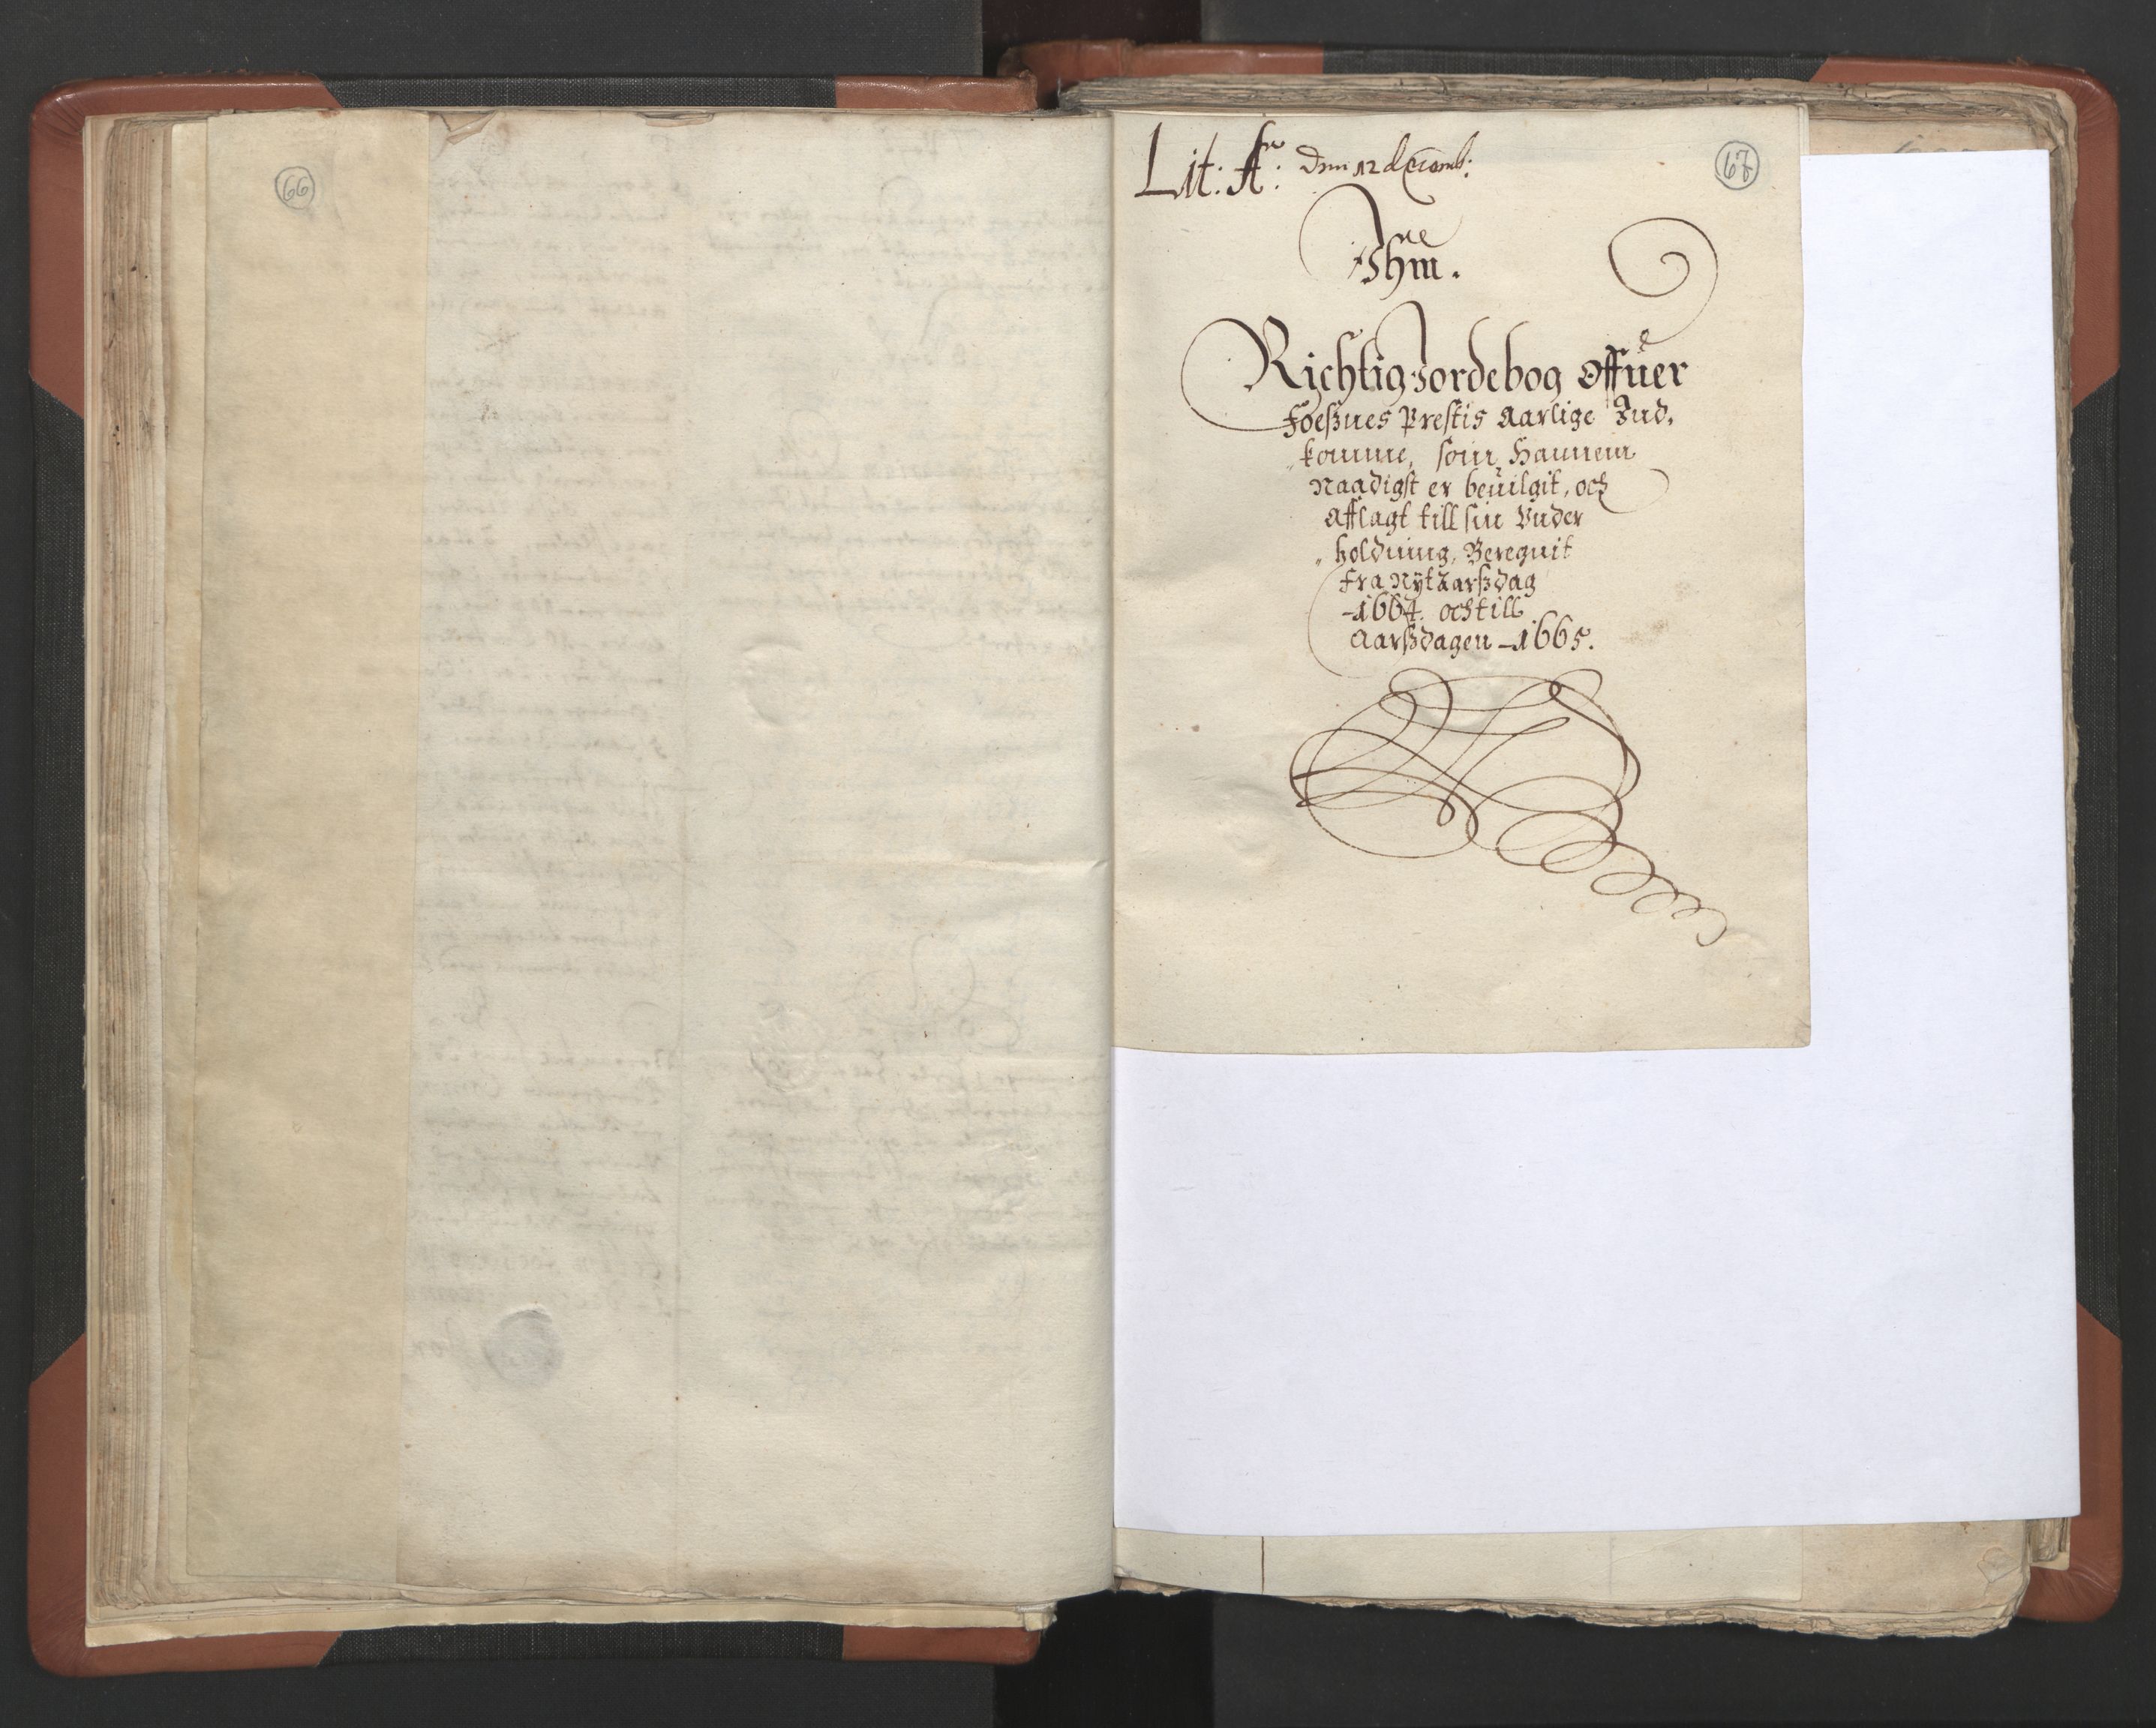 66
67
Lit: A: Dnn 12 decemb:
Richtig Jordebog Offuer
Foeßnes Prestis Aarlige Ind,
„komme, som Hannem
Naadigst er beuilgit, och
Afflagt till sin Vnder
„holdning, Beregnit
Fra Nytaarßdag
-1664. och till
Aarßdagen -1665.